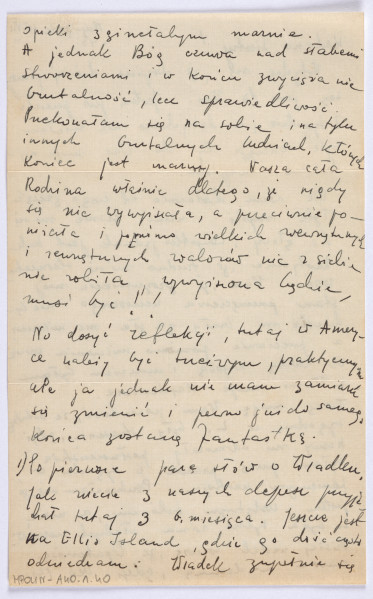 opieki zginęłabym marnie.
A jednak Bóg czuwa nad słabemi
stworzeniami i w końcu zwycięża nie
brutalność, lecz sprawiedliwość.
Przekonałam się na sobie i na tylu
innych brutalnych ludziach, których
koniec jest marny. Nasza cała
Rodzina właśnie dlatego, że nigdy
się nie wywyższała, a przeciwnie po-
i pomimo wielkich wewnętrznych
i zewnętrznych walorów nic z siebie
nie robiła, wywyższona będzie,
musi być!!!
No dosyć refleksji, tutaj w Amery-
ce należy być trzeźwym, praktycznym
ale ja jednak nie mam zamiaru
się zmienić i pewno już do samego
końca zostanę fantastką.
1) Po pierwsze parę słów o Władku,
Jak wiecie z naszych depesz przyje-
chał tutaj 3 b. miesiąca. Jeszcze jest
na Ellis Island, gdzie go dość często
odwiedzam. Władek zupełnie się
MPOLIN-A40.1.40